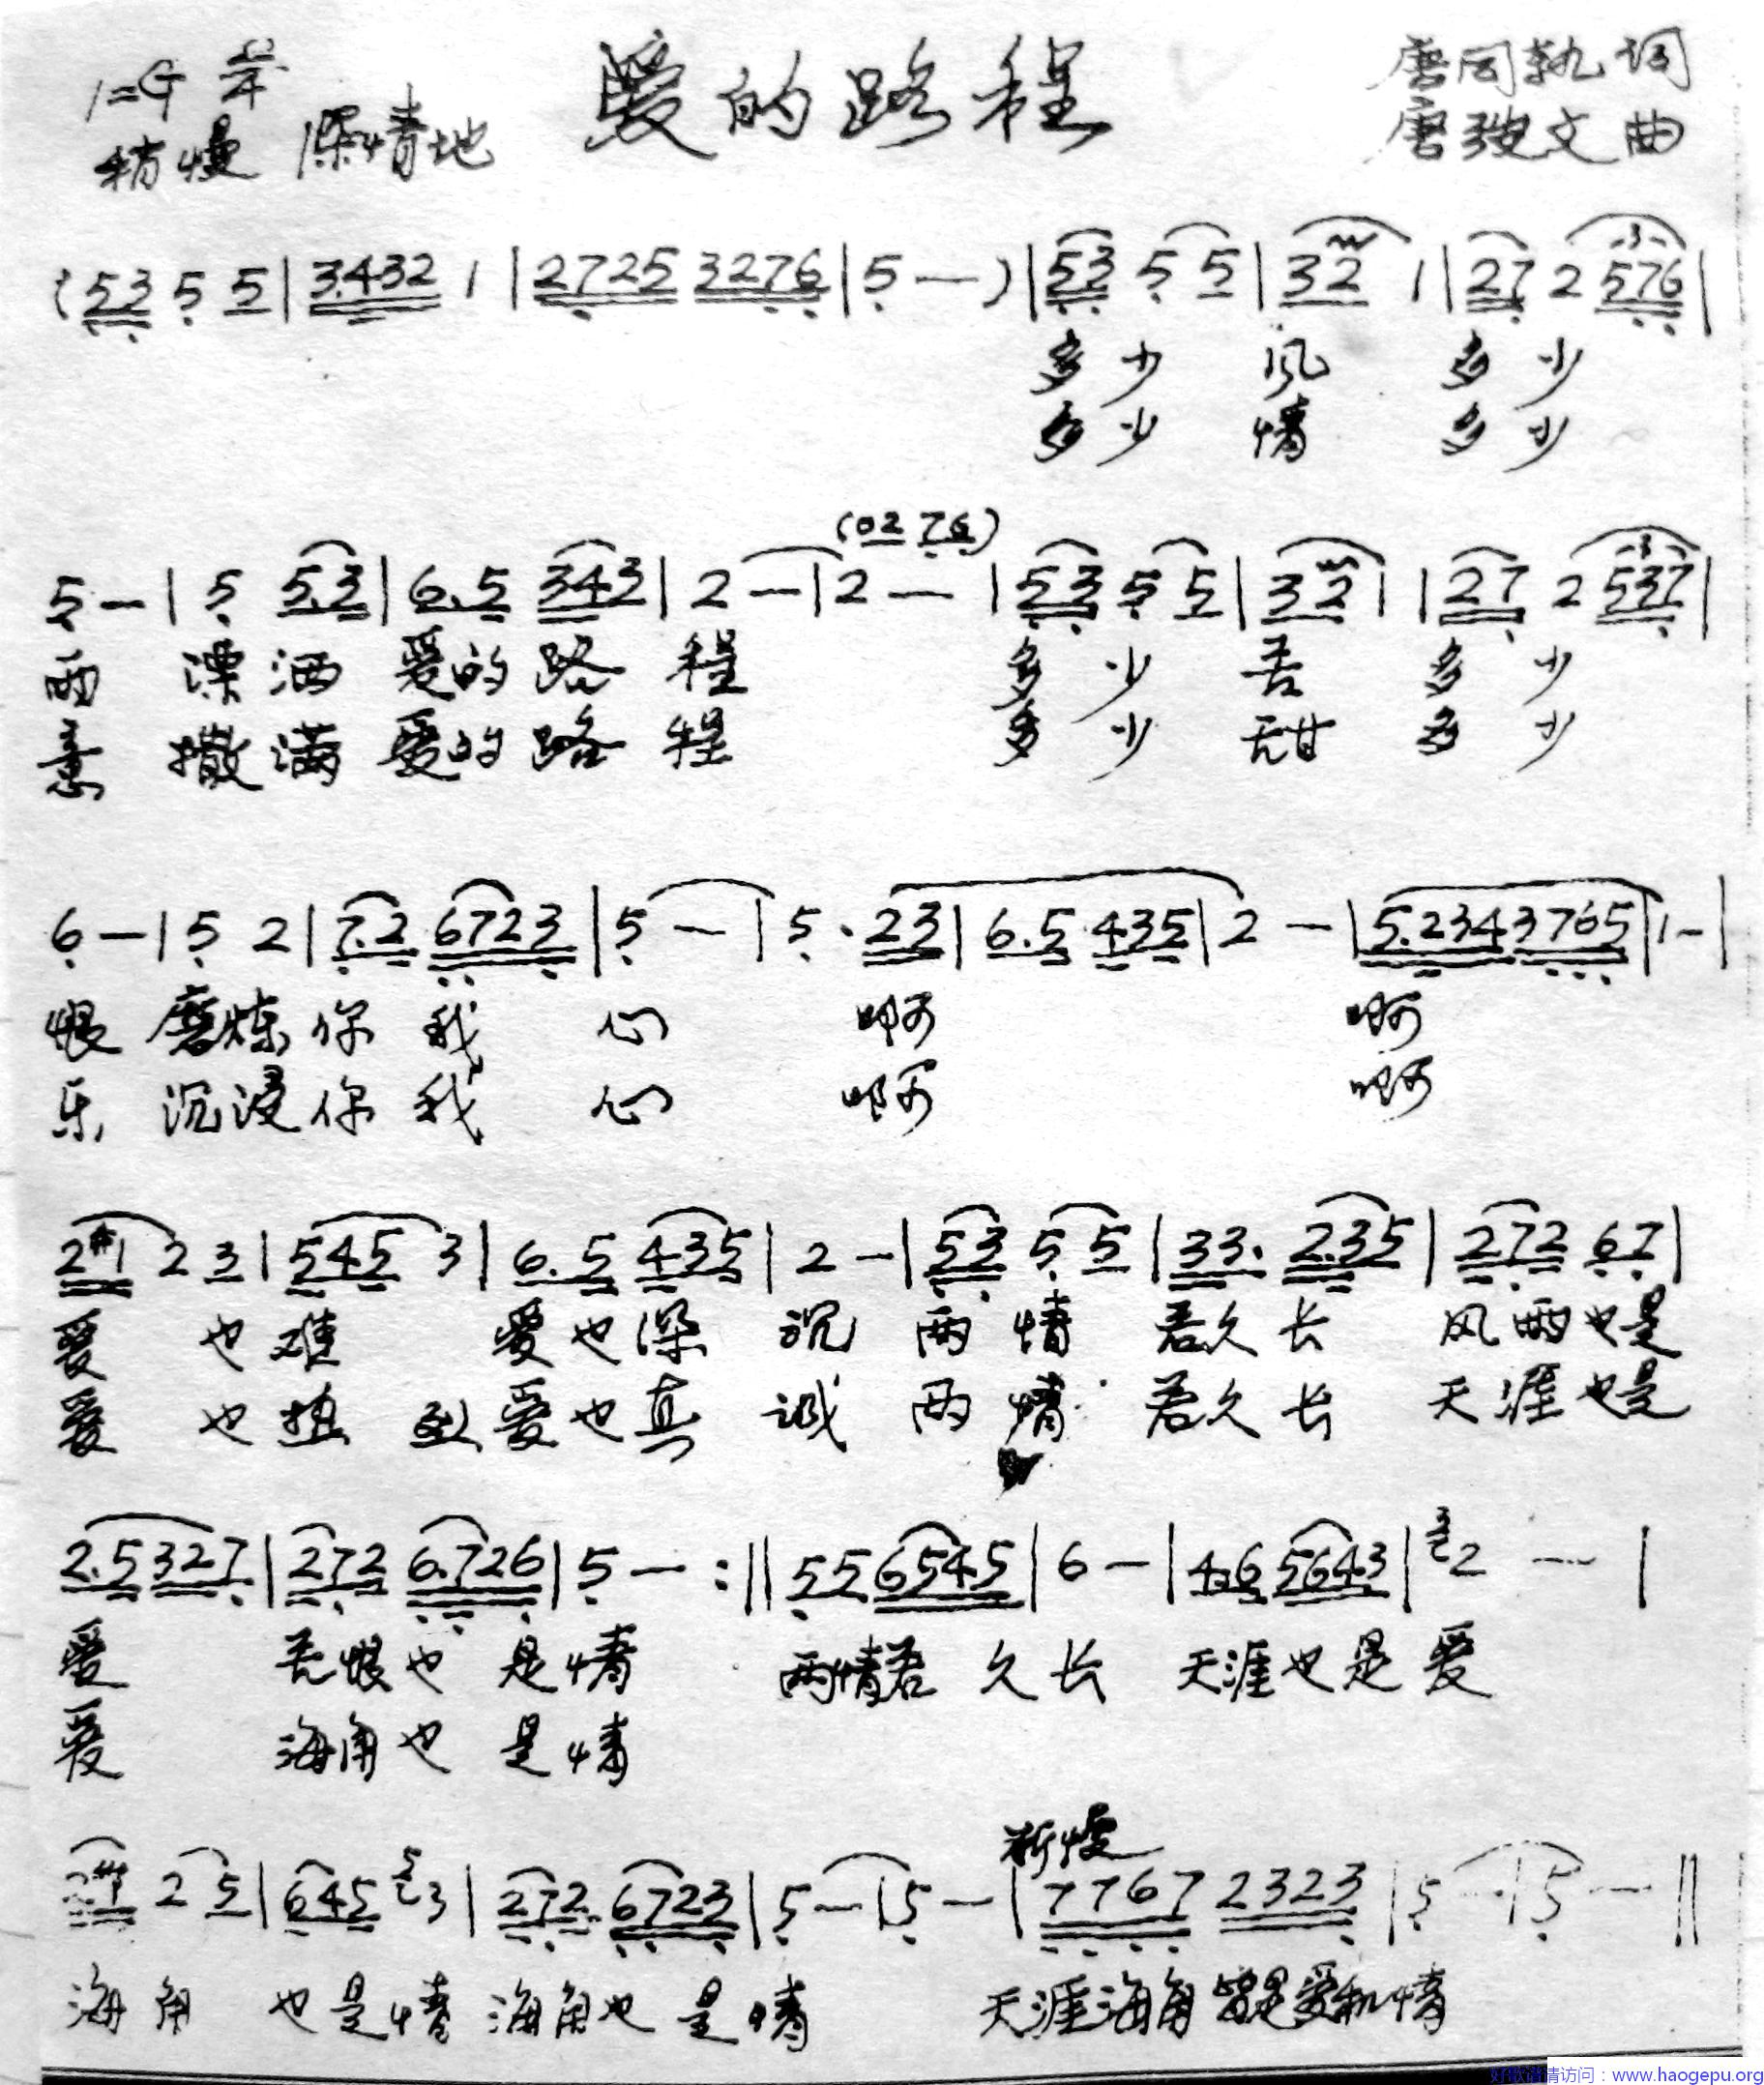 爱的路程
1=G 2/4
稍慢 深情地
唐 词
唐 文曲
(53 5 5|3.432 1|2725 3276|5 —)|53 5 5|32 1|27 2 576|
多少 风 多少
多少 情 多少
(02 76)
5 —|5 5.3|6.5 343|2 —|2 —|53 5 5|32 1|27 2 537|
雨 漂洒 爱的路程 多少 苦 多少
意 撒满 爱的路程 多少 甜 多少
6 —|5 2|7.2 6723|5 —|5. 23|6.5 435|2 —|5.234 3765|1 —|
恨 磨炼你我 心 啊 啊
乐 沉浸你我 心 啊 啊
2#1 2 3|545 3|6.5 435|2 —|53 5 5|33. 2.35|272 67|
爱 也难 爱也深沉 两情 若久长 风雨也是
爱 也挂 爱也真诚 两情 若久长 天涯也是
2.5 327|272 6.726|5 — :||55 6545|6 —|4.6 5643|3 2 —|
爱 苦恨也是情 两情若久长 天涯也是爱
爱 海角也是情
渐慢
2#1 2 5|645 5 3|272 6723|5 —|5 —|7767 2323|5 —|5 —||
海角 也是情 海角也是情 天涯海角皆是爱和情
好歌谱请访问：www.haogepu.org